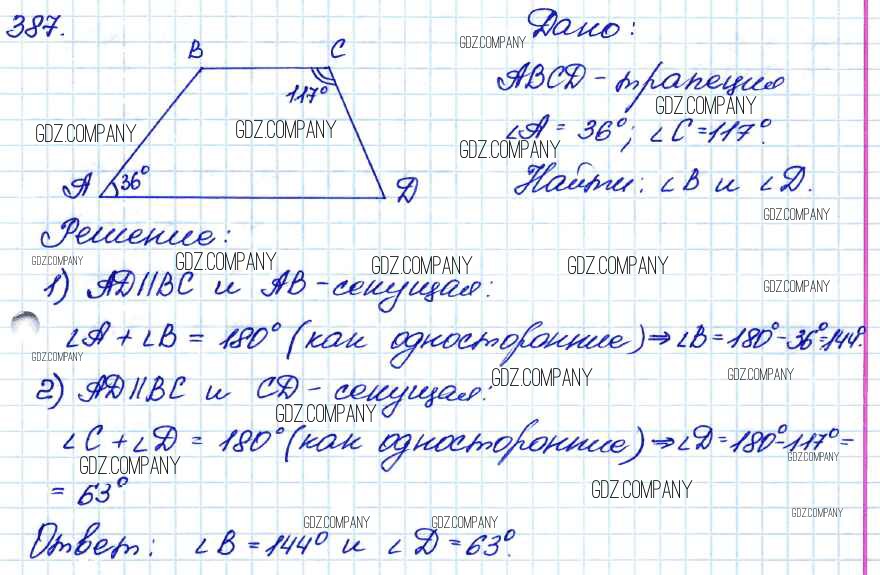 387.
Дано:
GDZ.COMPANY
B C
ABCD - трапеция
117°
GDZ.COMPANY
GDZ.COMPANY GDZ.COMPANY
∠A = 36°; ∠C = 117°.
GDZ.COMPANY
A 36° D
Найти: ∠B и ∠D.
GDZ.COMPANY
Решение:
GDZ.COMPANY GDZ.COMPANY GDZ.COMPANY GDZ.COMPANY
1) AD||BC и AB - секущая:
GDZ.COMPANY
∠A + ∠B = 180° (как односторонние) ⇒ ∠B = 180° - 36° = 144°.
GDZ.COMPANY
2) AD||BC и CD - секущая:
GDZ.COMPANY GDZ.COMPANY
GDZ.COMPANY
∠C + ∠D = 180° (как односторонние) ⇒ ∠D = 180° - 117° =
GDZ.COMPANY GDZ.COMPANY
= 63°
GDZ.COMPANY
GDZ.COMPANY GDZ.COMPANY GDZ.COMPANY
Ответ: ∠B = 144° и ∠D = 63°.